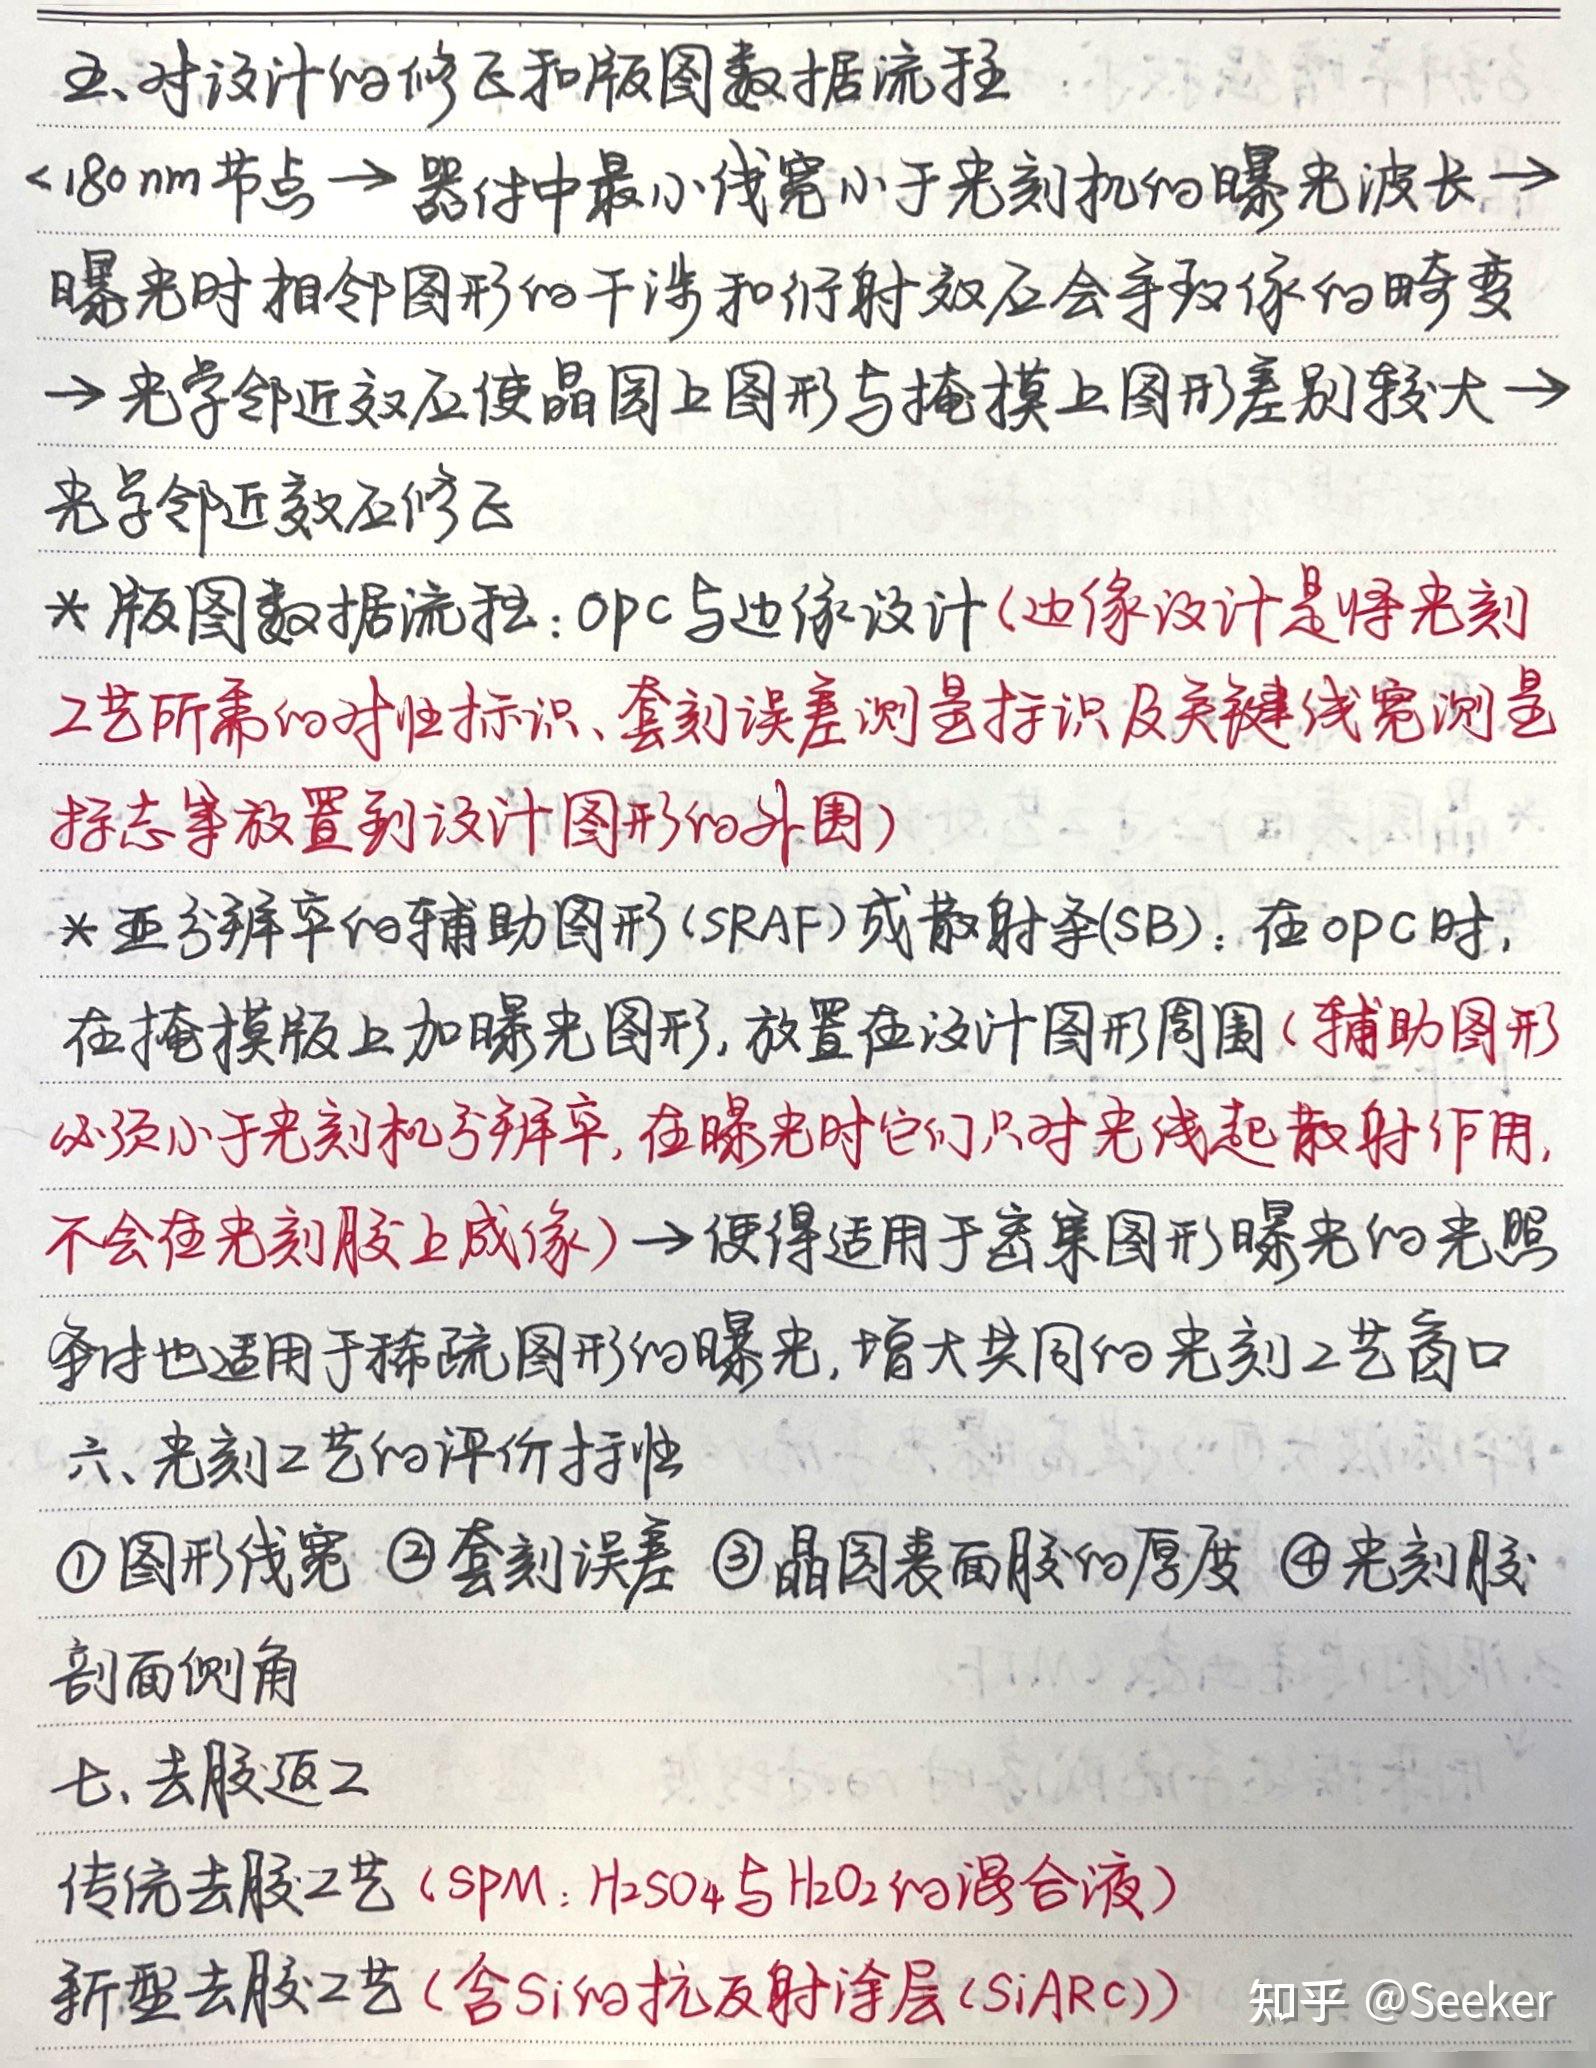 五、对设计的修正和版图数据流程
<180nm节点→器件中最小线宽小于光刻机的曝光波长→
曝光时相邻图形的干涉和衍射效应会导致像的畸变
→光学邻近效应使晶圆上图形与掩模上图形差别较大→
光学邻近效应修正
*版图数据流程:OPC与边缘设计(边缘设计是将光刻
工艺所需的对准标识、套刻误差测量标识及关键线宽测量
标志等放置到设计图形的外围)
*亚分辨率的辅助图形(SRAF)或散射条(SB):在OPC时,
在掩模版上加曝光图形,放置在设计图形周围(辅助图形
必须小于光刻机分辨率,在曝光时它们只对光线起散射作用,
不会在光刻胶上成像)→使得适用于密集图形曝光的光照
条件也适用于稀疏图形的曝光,增大共同的光刻工艺窗口
六、光刻工艺的评价标准
①图形线宽 ②套刻误差 ③晶圆表面胶的厚度 ④光刻胶
剖面侧角
七、去胶返工
传统去胶工艺(SPM:H2SO4与H2O2的混合液)
新型去胶工艺(含Si的抗反射涂层(SiARC))
知乎 @Seeker